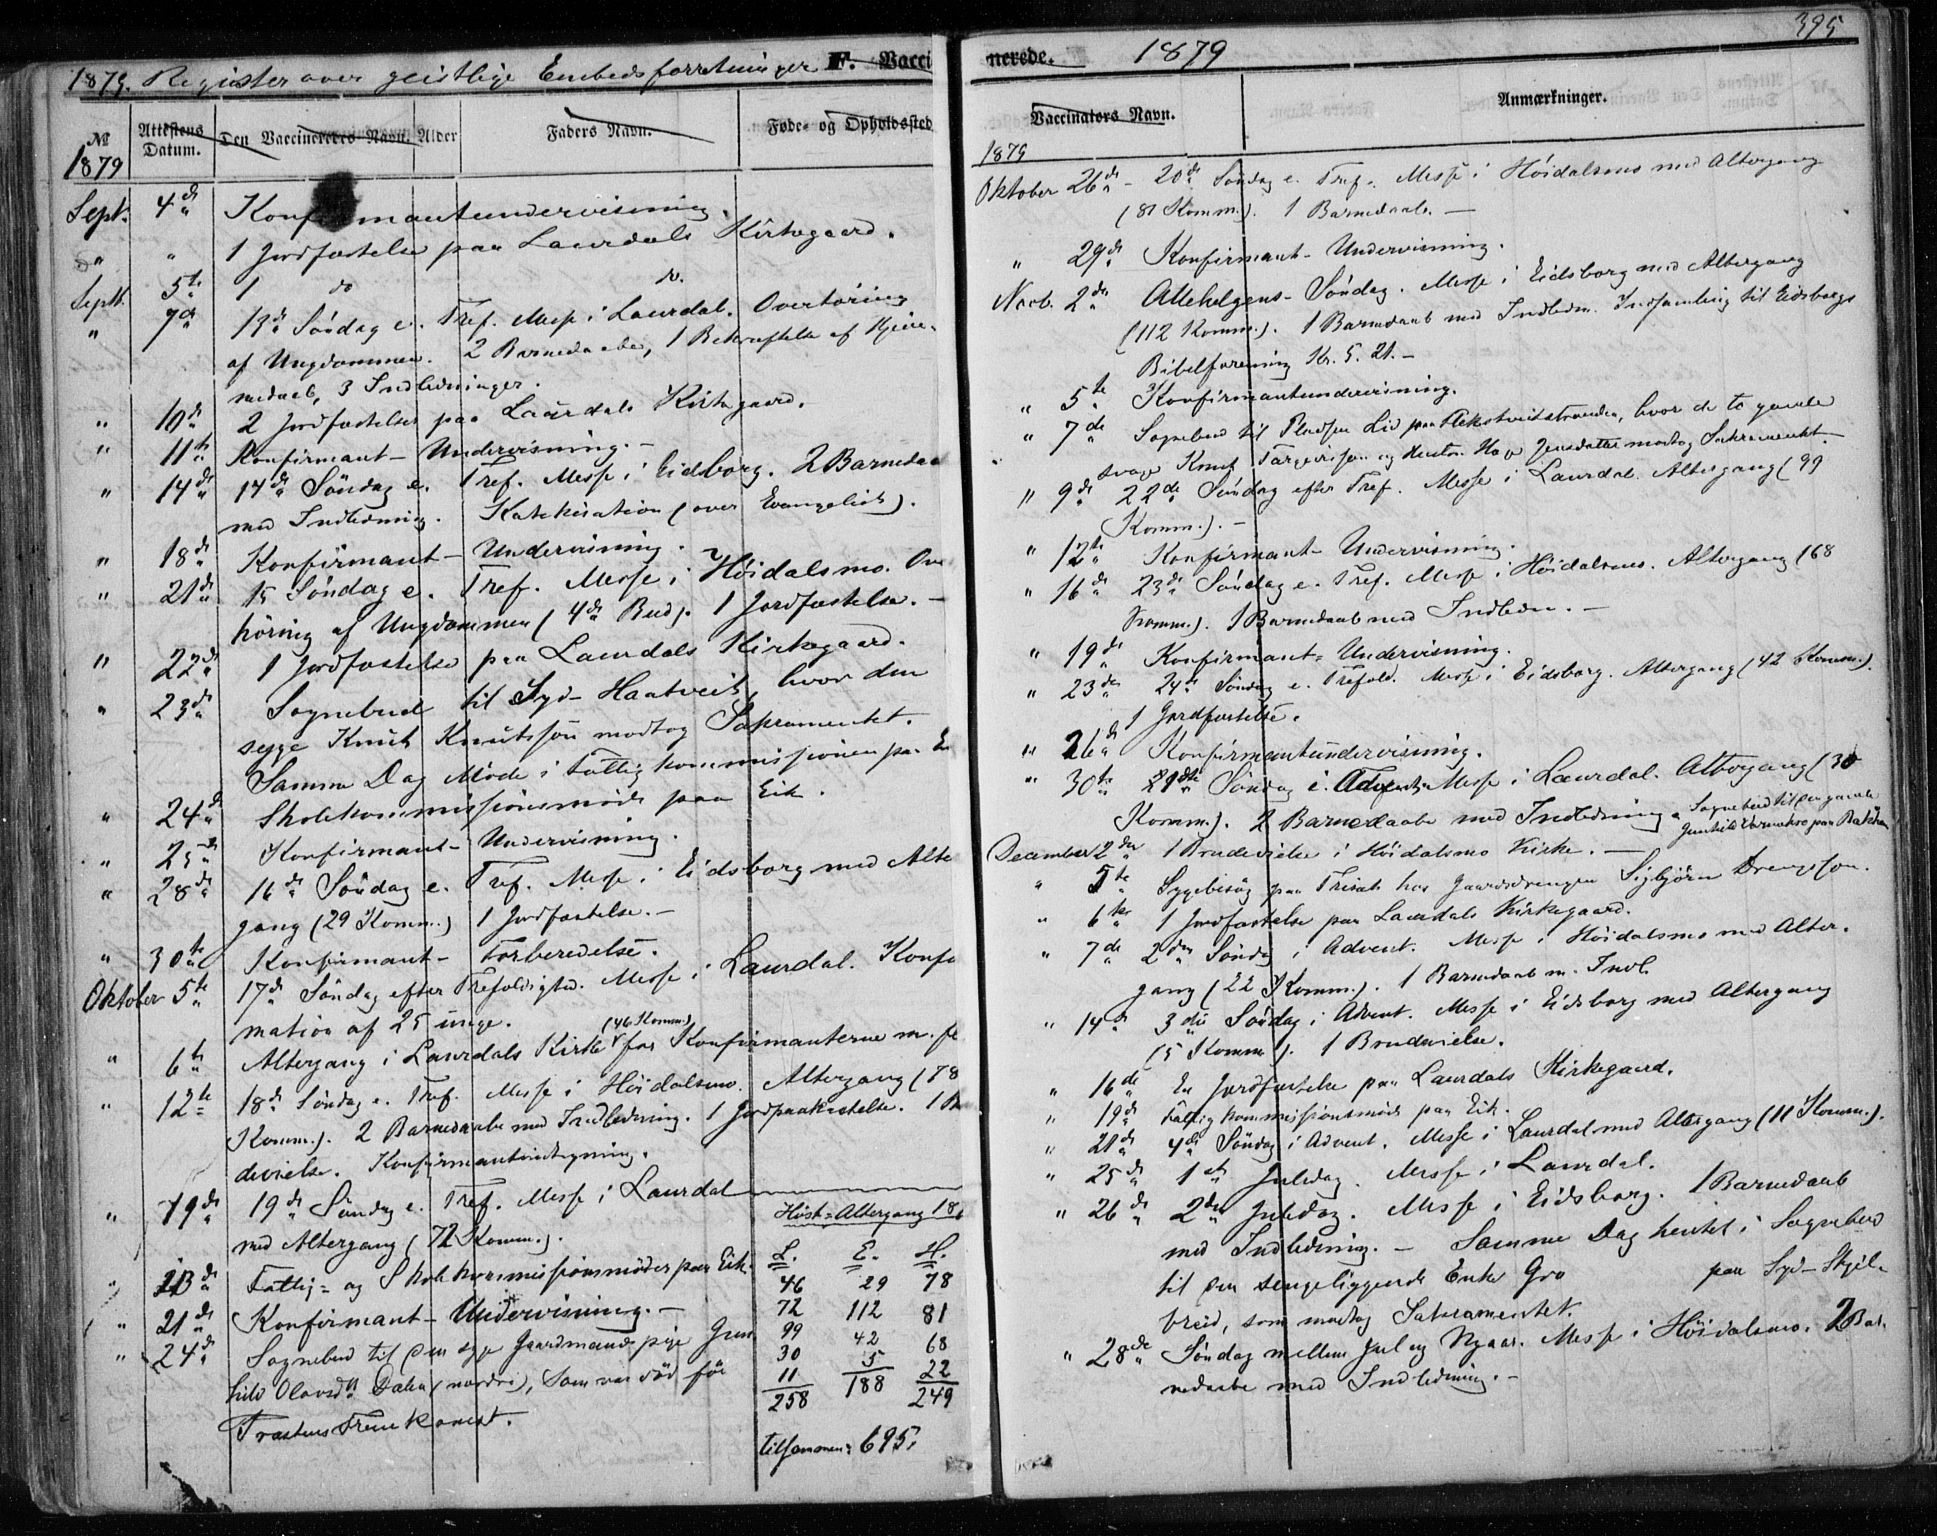 1879. Register over geistlige Embedsforretninger F. Vacci
№ Attestens Datum. Den Vaccineredes Navn. Alder Faders Navn. Føde- og Opholdssted
1879
Sept. 4de Konfirmantundervisning.
" " 1 Jordfæstelse paa Laurdals Kirkegaard.
Sept. 5te 1 do do.
" 7de 13de Söndag e. Tref. Messe i Laurdal. Overhöring
af Ungdommen. 2 Barnedaabe, 1 Bekræftelse af Hjem-
medaab, 3 Indledninger.
" 10de 2 Jordfæstelser paa Laurdals Kirkegaard.
" 11te Konfirmant-Undervisning. -
" 14de 14de Söndag e. Tref. Messe i Eidsborg. 2 Barnedaa
med Indledning. Katekisation (over Evangeliet).
" 18de Konfirmant-Undervisning.
" 21de 15 Söndag e. Tref. Messe i Höidalsmo. Ove
höring af Ungdommen (4de Bud). 1 Jordfæstelse. -
" 22de 1 Jordfæstelse paa Laurdals Kirkegaard.
" 23de Sognebud til Syd-Haatveit, hvor den
syge Knut Knutssön modtog Sakramentet.
Samme Dag Möde i Fattigkommissionen paa E
" 24de Skolekommissionsmöde paa Eik.
" 25de Konfirmant-Undervisning.
" 28de 16de Söndag e. Tref. Messe i Eidsborg med Alte
gang (29 Komm.) 1 Jordfæstelse. -
" 30te Konfirmant-Forberedelse.
Oktober 5te 17de Söndag efter Trefoldighed. Messe i Laurdal. Konfir
mation af 25 unge.
(46 Komm.)
" 6te Altergang i Laurdals Kirke for Konfirmanterne m. fl
" 12te 18de Söndag e. Tref. Messe i Höidalsmo. Altergang (78
Komm.). 2 Barnedaabe med Indledning. 1 Jordpaakastelse. 1 B
devielse. Konfirmantindtegning.
" 19de 19de Söndag e. Tref. Messe i Laurdal
med Altergang (72 Komm.).
Höst-Altergang 18
L. E. H.
" Fattig- og Skolekommissionsmöder paa Eik.
46 29 78
" 21de Konfirmant-Undervisning. -
72 112 81
" 24de Sognebud til den syge Gaardmandspige Gun
99 42 68
30 5 22
hild Olavsdtr Dalen (nordre), som var död för
11 188 249
258
Præstens Fremkomst.
tilsammen: 695.
395
nerede. 1879
Vaccinators Navn. Anmærkninger.
1879
Oktober 26de - 20de Söndag e. Tref. Messe i Höidalsmo med Altergang
(81 Komm.). 1 Barnedaab. -
" 29de Konfirmant-Undervisning.
Novb. 2den Allehelgens-Söndag. Messe i Eidsborg med Altergang
(112 Komm.). 1 Barnedaab med Indledn. Indsamling til Eidsborgs
Bibelforening Kr. 5. 21. -
" 5te Konfirmantundervisning.
" 7de Sognebud til Pladsen Lid paa, hvor de to gamle
svage Knut Targeirsson og Hustru Jensdatter modtog Sakramentet.
" 9de 22de Söndag efter Tref. Messe i Laurdal. Altergang (99
Komm.). -
" 12te Konfirmant-Undervisning.
" 16de 23de Söndag e. Tref. Messe i Höidalsmo. Altergang (68
Komm.). 1 Barnedaab med Indledn. -
" 19de Konfirmant-Undervisning.
" 23de 24de Söndag e. Trefold. Messe i Eidsborg. Altergang (42 Komm.).
1 Jordfæstelse.
" 26de Konfirmantundervisning.
" 30te 1ste Söndag i Advent. Messe i Laurdal. Altergang (30
Komm.). 2 Barnedaabe med Indledning. Sognebud til den gamle
Gunhild paa Bakken
December 2den 1 Brudevielse i Höidalsmo Kirke. -
" 5te Sygebesög paa Trisæt hos Gaardsdrengen Sigbjörn Drengson.
" 6te 1 Jordfæstelse paa Laurdals Kirkegaard.
" 7de 2den Söndag i Advent. Messe i Höidalsmo med Alter-
gang (22 Komm.). 1 Barnedaab m. Indl.
" 14de 3die Söndag i Advent. Messe i Eidsborg med Altergang
(5 Komm.). 1 Brudevielse.
" 16de En Jordfæstelse paa Laurdals Kirkegaard.
" 19de Fattigkommissionsmöde paa Eik.
" 21de 4de Söndag i Advent. Messe i Laurdal med Altergang (11 Komm.).
" 25de 1ste Juledag. Messe i Laurdal.
" 26de 2den Juledag. Messe i Eidsborg. 1 Barnedaab
med Indledning. - Samme Dag hentet i Sognebud
til den sengeliggende Enke Gro paa Syd-Skjel-
breid, som modtog Sakramentet.
" 28de Söndag mellem Jul og Nyaar. Messe i Höidalsmo. 2 Bar-
nedaabe med Indledning. -